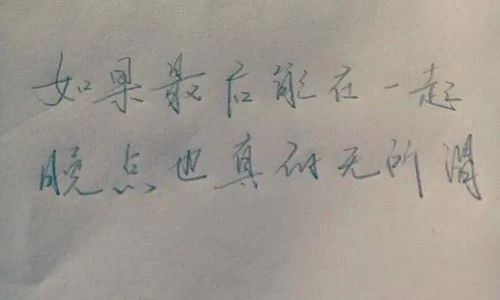 如果最后能在一起
晚点也真的无所谓